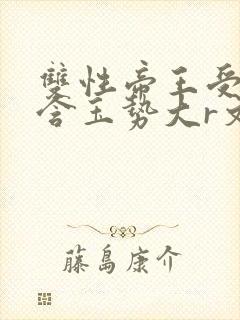 雙性帝王受
含玉勢大r文
藤島康介